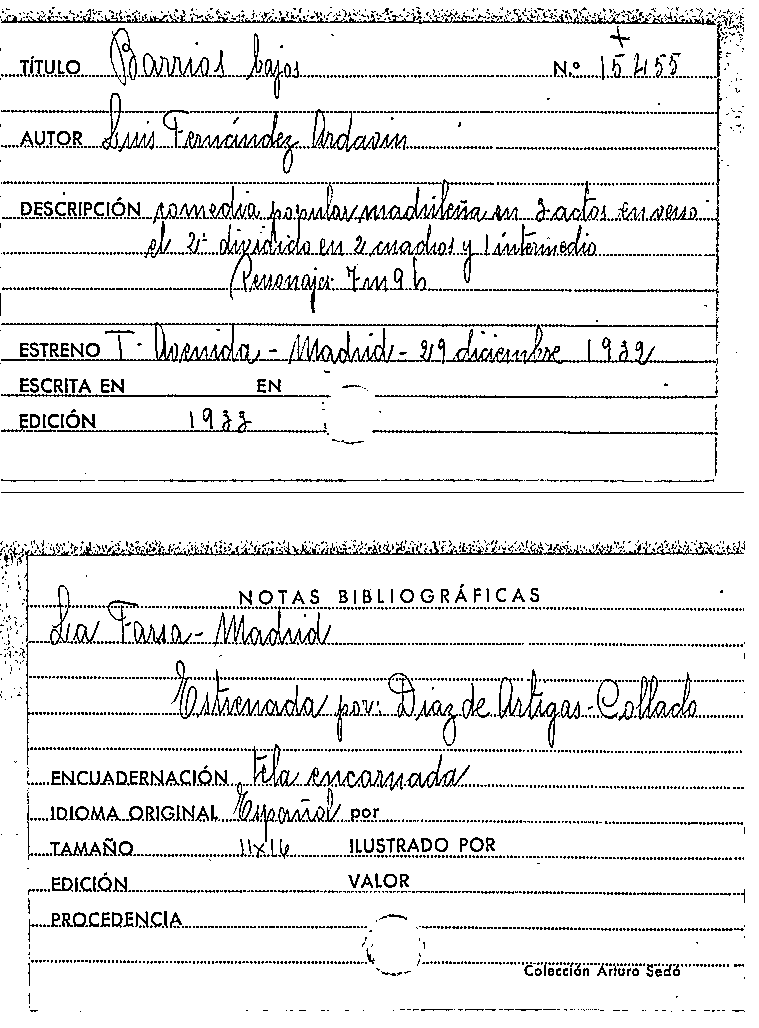 +
TÍTULO Barrios bajos N.º 15455
AUTOR Luis Fernández Ardavin
DESCRIPCIÓN comedia popular madrileña en 3 actos en verso
el 2º dividido en 2 cuadros y 1 intermedio
Personajes: 7m 9h
ESTRENO T. Avenida - Madrid - 29 diciembre 1932
ESCRITA EN EN
EDICIÓN 1933
NOTAS BIBLIOGRÁFICAS
La Farsa - Madrid
Estrenada por: Diaz de Artigas - Collado
ENCUADERNACIÓN tela encarnada
IDIOMA ORIGINAL Español por
TAMAÑO 11x16 ILUSTRADO POR
EDICIÓN VALOR
PROCEDENCIA
Colección Arturo Sedó